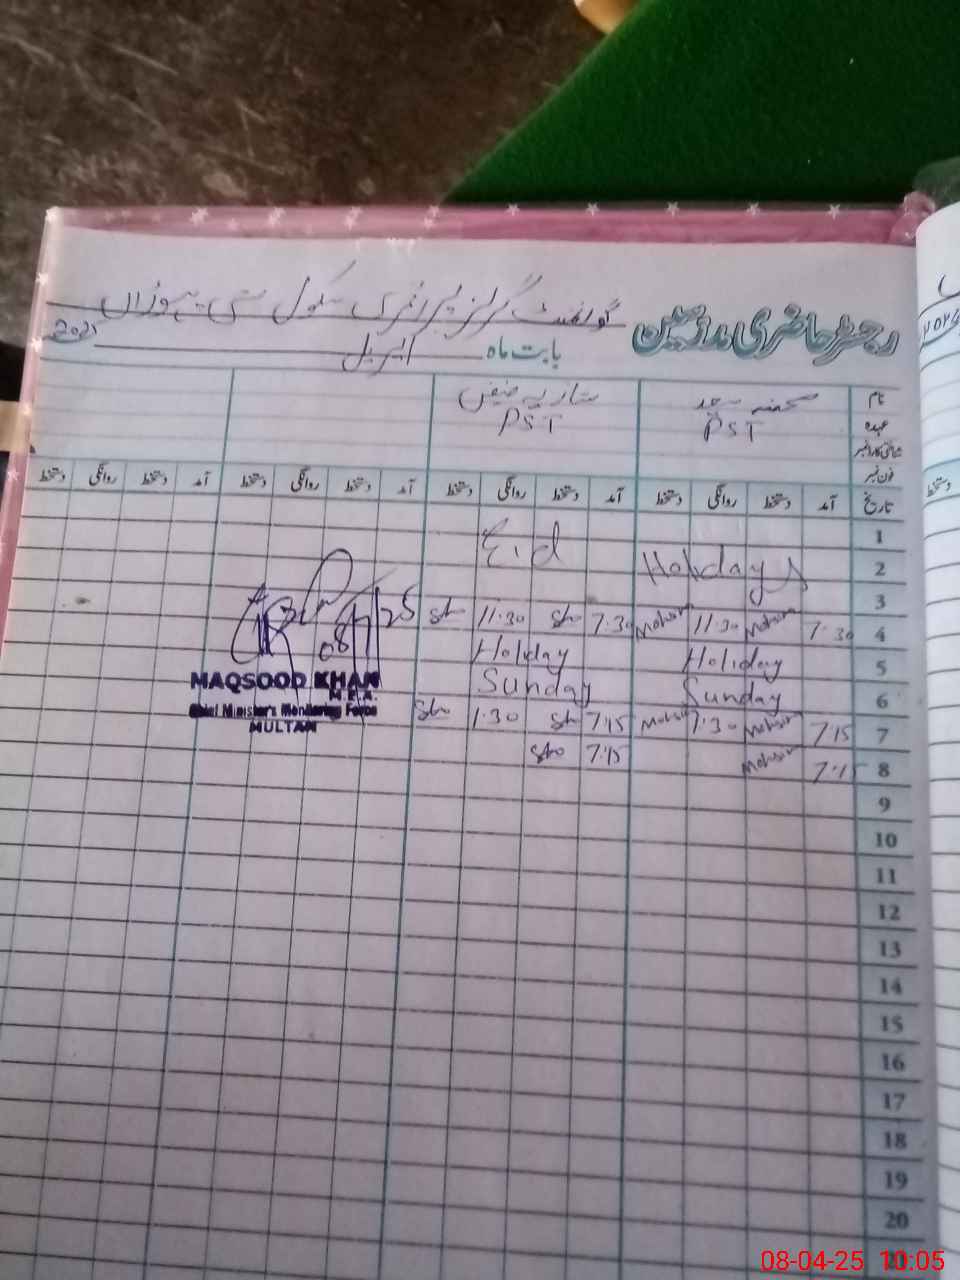 رجسٹر حاضری ملازمین گورنمنٹ گرلز پرائمری سکول بستی
بابت ماہ اپریل 2025
نام
عہدہ PST PST
شناختی کارڈ نمبر
فون نمبر
تاریخ آمد دستخط روانگی دستخط آمد دستخط روانگی دستخط آمد دستخط روانگی دستخط آمد دستخط روانگی دستخط
1
2 Holidays Eid
3
4 7:30 Mohsin 11:30 Mohsin 7:30 Sho 11:30 Sho
5 Holiday Holiday
6 Sunday Sunday
7 7:15 Mohsin 1:30 Mohsin 7:15 Sho 1:30 Sho
8 7:15 Mohsin 7:15 Sho
9
10
11
12
13
14
15
16
17
18
19
20
08/4/25
MAQSOOD KHAN
M.E.A.
Chief Minister's Monitoring Force
MULTAN
دستخط
08-04-25 10:05